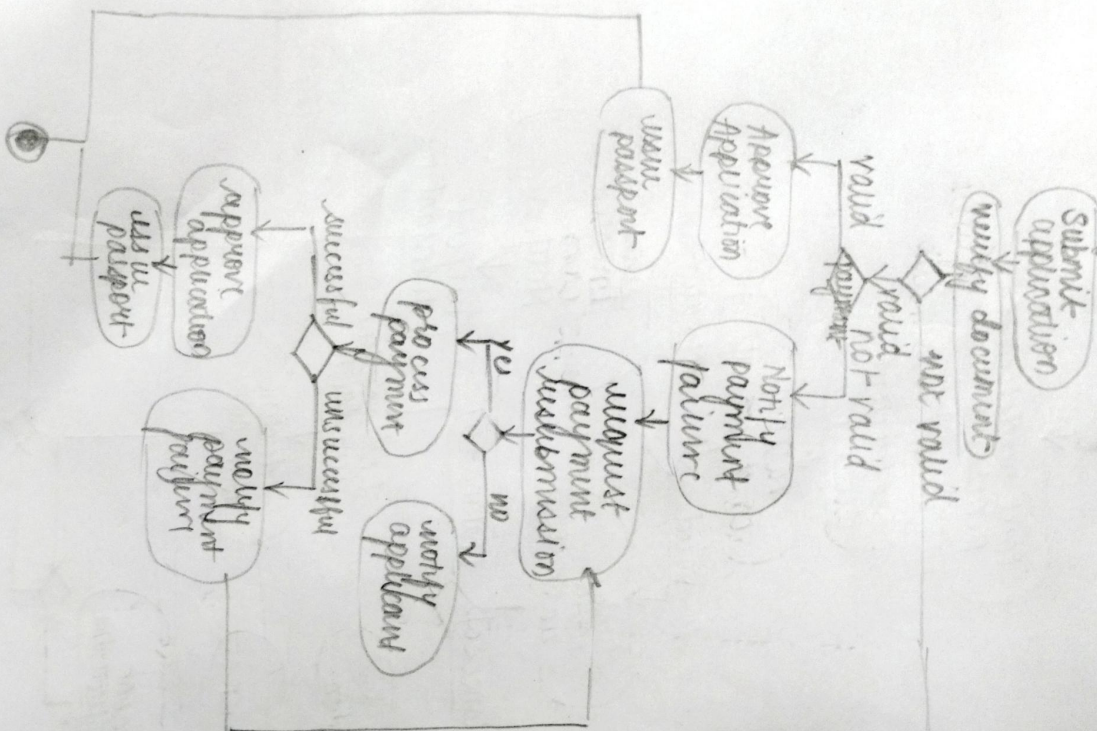 Submit
application
verify document
not valid
valid
valid
payment
not valid
Approve
Application
issue
passport
Notify
payment
failure
request
payment
resubmission
yes
no
process
payment
notify
applicant
successful
unsuccessful
approve
application
issue
passport
notify
payment
failure